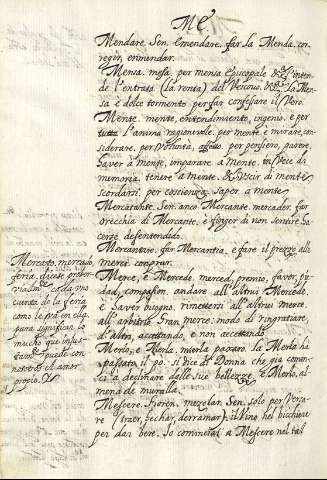 Me.
Mendare. Sen. Emendare. far la Menda. cor-
regir, enmendar.
Mensa. mesa, per mensa Episcopale &c. s'inten-
de l'entrata (la renta) del Vescovo. &c. La Men-
sa è dolce tormento per far confessare il Vero.
Mente. mente, entendimiento, ingenio. e per
tutta l'anima ragionevole. per mente è mirare, con-
siderare. per Voluntà, affetto. per pensiero, parere.
Saver à mente, imparare a mente. in Vece da
memoria. tenere à mente. & Uscir di mente
scordarsi. per coscienza. Saper a mente
Mercatante. Sen. anco Mercante. mercader. far
orecchia di Mercante, è fonger di non sentire. ha-
cerse desentendido.
Mercantare. far Mercantia, e fare il prezzo alle
merci. comprar.
Merce, e Mercede. merced, premio, favor, pie-
dad, compasion. andare all'altrui Mercede.
è Saver bisogno. rimettersi all'Altrui merce.
all'arbitrio. Gran merce. modo di ringratiare
di Altri, accettando, e non accettando.
Merlo, e Merla. mierla paxaro. La Merla ha
passato il po. si dice di Donna che già comin-
ci à declinare dalle sue bellezze. e Merlo, al-
mena de muralla.
Mescere. Fioren. mezclar. Sen. solo per Versa-
re (traer, echar, derramar) il Vino nel bicchiere
per dar bere. Io cominciai à Mescere nel tal
Mercato, mercado,
feria. dicese prover-
vialm.te cada uno
cuenta de la feria
como le va en ella,
para significar lo
mucho que infus-
tam.te puede con
nosotros el amor
propio.